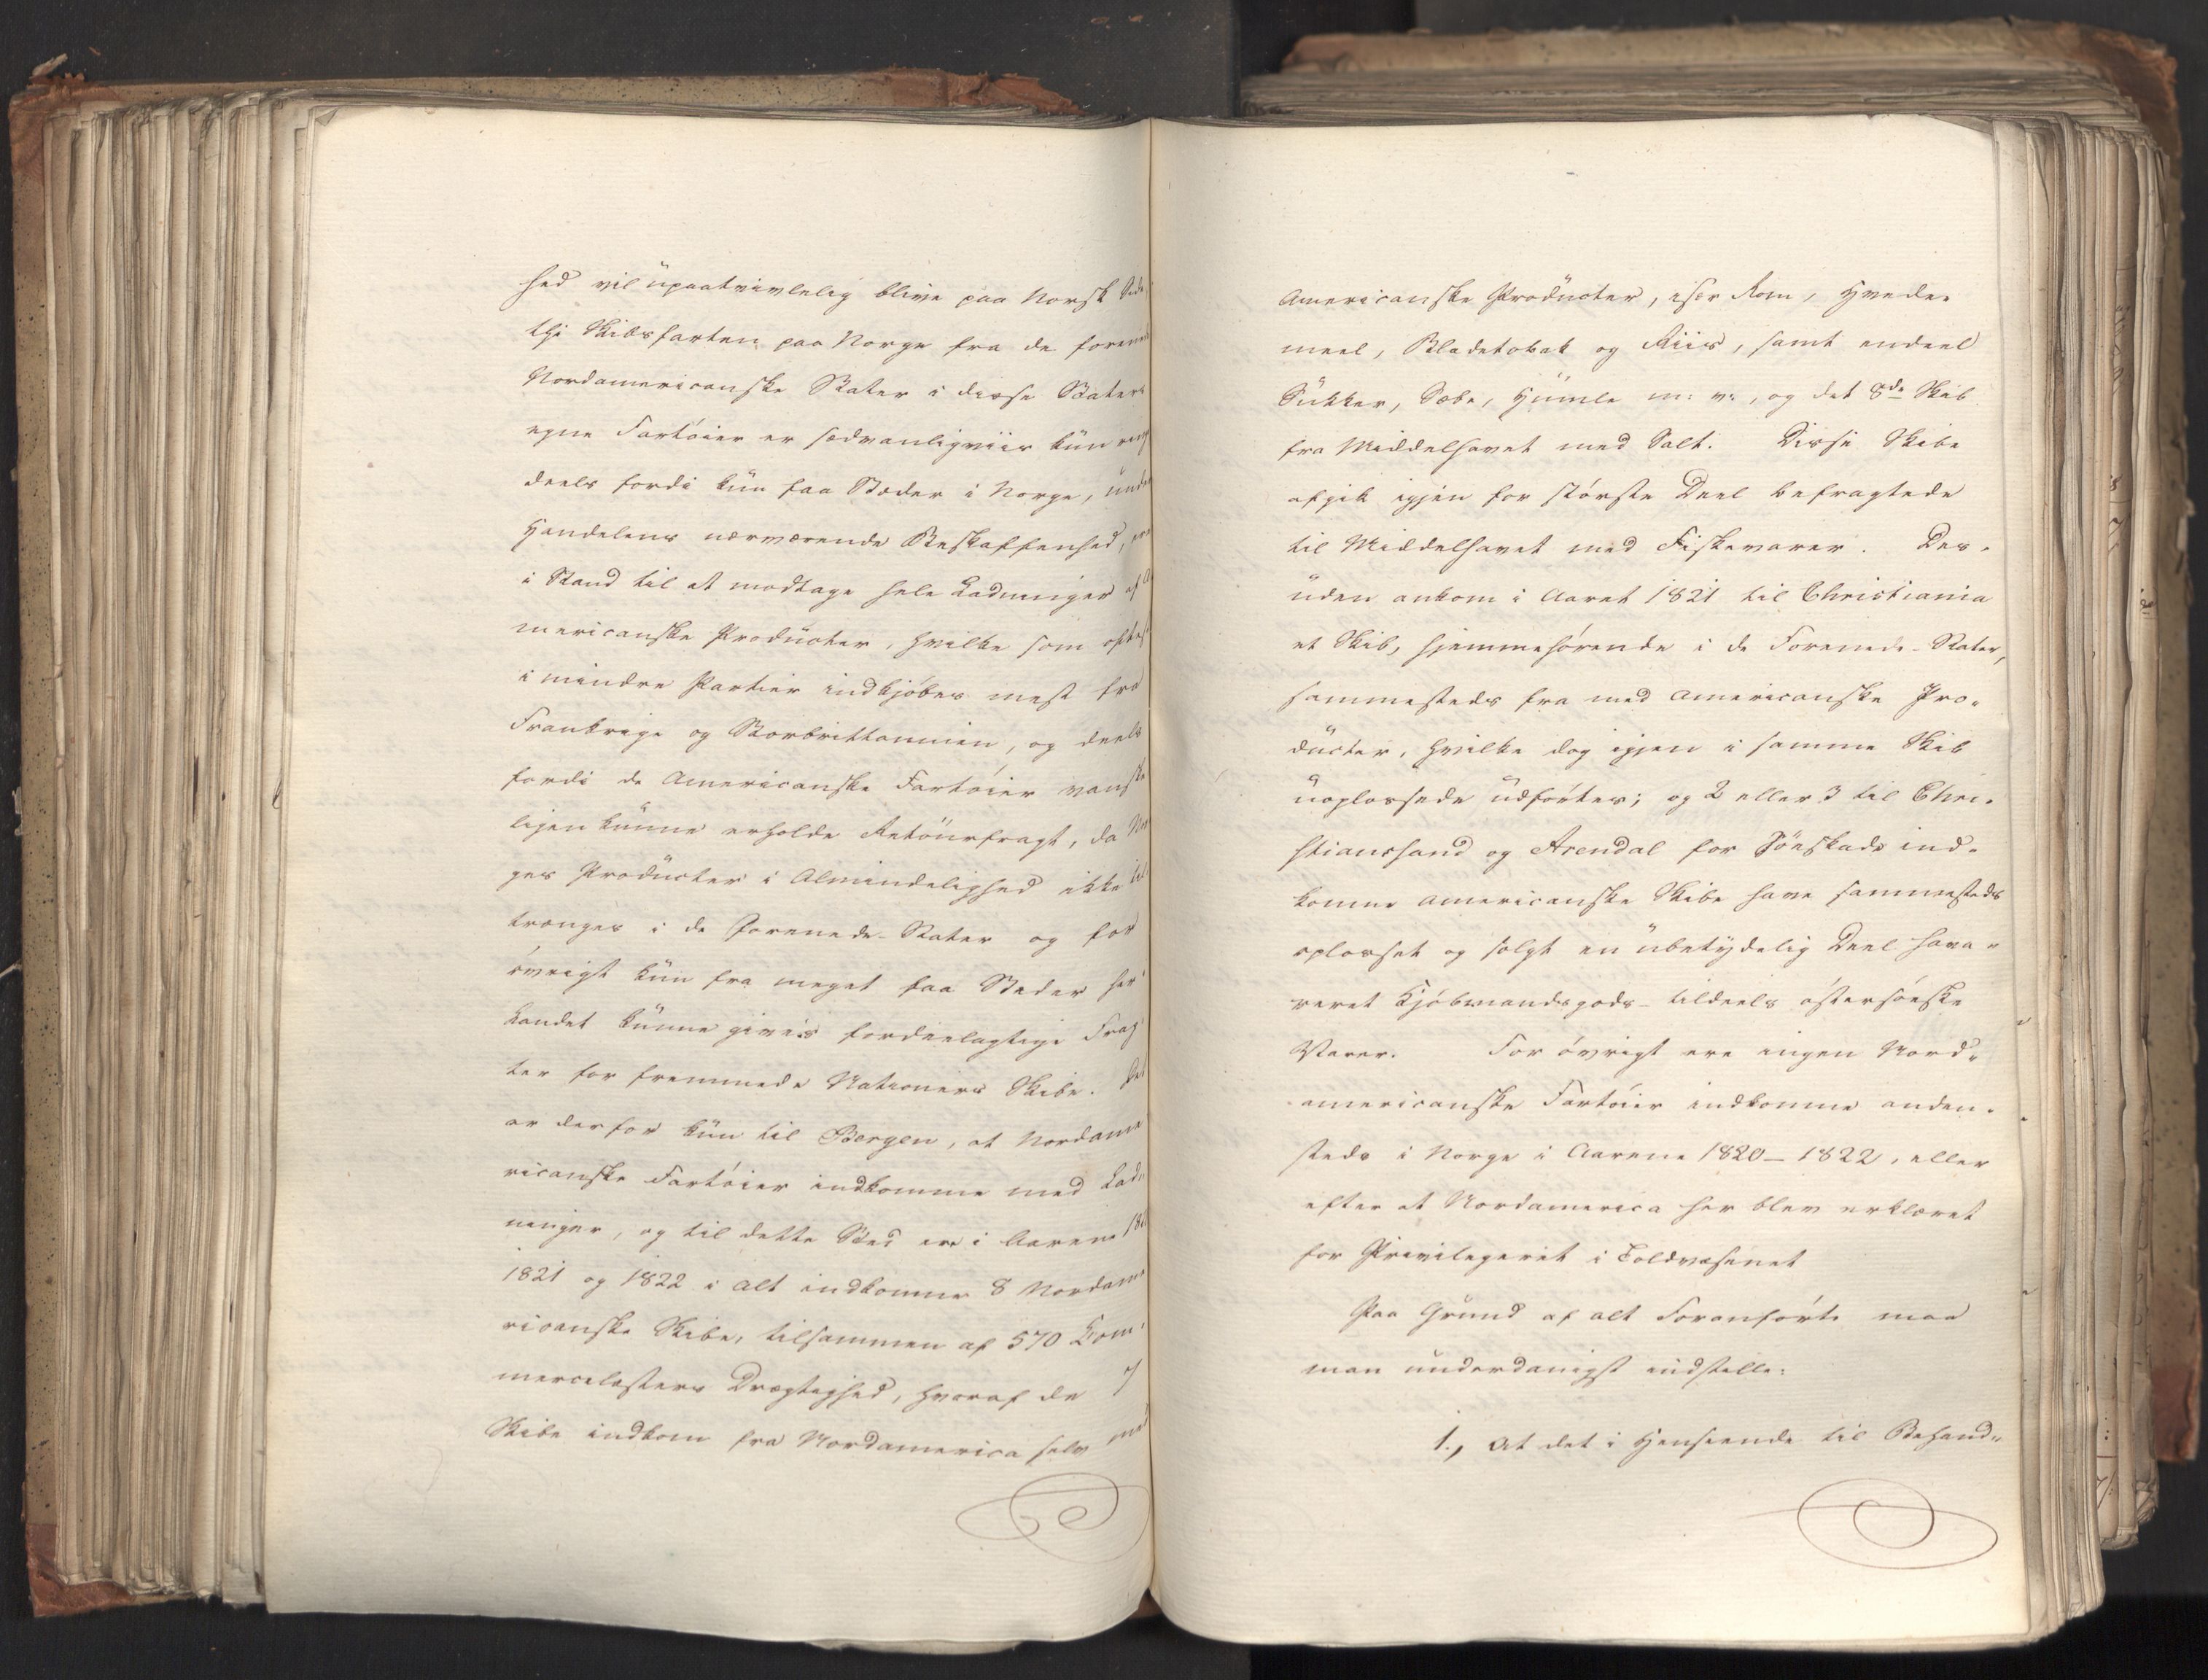 hed vil upaatvivlelig blive paa Norsk Side
thi Skibsfarten paa Norge fra de forenede
Nordamericanske Stater i disse Staters
egne Fartóier er sædvanligviis kun ring
deels fordi kun faa Stæder i Norge, under
Handelens nærværende Beskaffenhed, ere
i Stand til at modtage hele Ladninger af A
mericanske Producter, hvilke som oftest
i mindre Partier indkjóbes mest fra
Frankrige og Storbrittannien, og deels
fordi de Americanske Fartóier vanske
ligen kunne erholde Retourfragt, da Nor
ges Producter i Almindelighed ikke til
trænges i de forenede Stater og for
óvrigt kun fra meget faa Steder her i
Landet kunne gives fordeelagtige Frag
ter for fremmede Nationers Skibe. Det
ar derfor kun til Bergen, at Nordame
ricanske Fartóier indkomme med Lad-
ninger, og til dette Sted ere i Aarene 182
1821 og 1822 i alt indkomne 8 Nordame
ricanske Skibe, tilsammen af 570 Com-
mercelæsters Drægtighed, hvoraf de 7
Skibe indkom fra Nordamerica selv med
Americanske Producter, især Rom, Hvede-
meel, Bladetobak og Riis, samt endeel
Sukker, Sæbe, Humle m: v:, og det 8de Skib
fra Middelhavet med Salt. Disse Skibe
afgik igjen for stórste Deel befragtede
til Middelhavet med Fiskevarer. Des-
uden ankom i Aaret 1821 til Christiania
et Skib, hjemmehórende i de Forenede Stater,
sammesteds fra med americanske Pro-
ducter, hvilke dog igjen i samme Skib
uoplossede udfórtes; og 2 eller 3 til Chri-
stianssand og Arendal for Sóeskade ind-
komne americanske Skibe have sammesteds
oplosset og solgt en ubetydelig Deel hava-
reret Kjóbmandsgods tildeels óstersóeske
Varer. For óvrigt ere ingen Nord-
americanske Fartóier indkomne anden-
steds i Norge i Aarene 1820–1822, eller
efter at Nordamerica her blev erklæret
for Privilegeret i Toldvæsenet
Paa Grund af alt Foranfórte maa
man underdanigst indstille:
1., at det i Henseende til Behand-